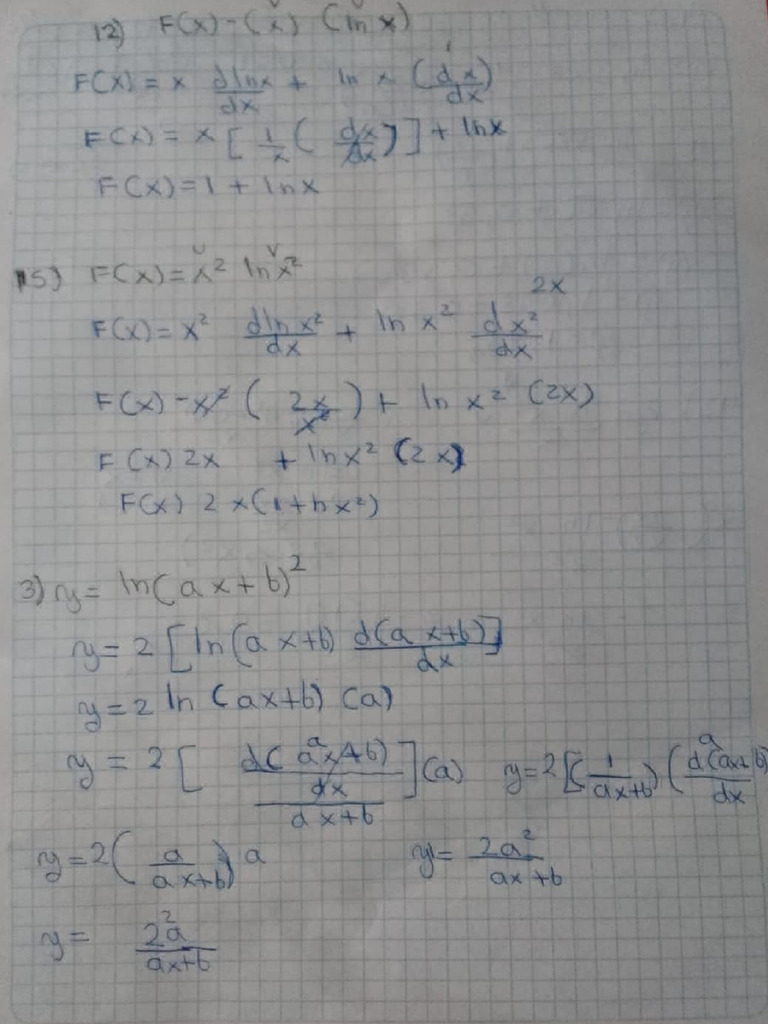 12) F(x) - (x) (ln x)
F(x) = x dlnx/dx + ln x (dx/dx) 1
F(x) = x [ 1/x ( dx/dx ) ] + lnx
F(x) = 1 + lnx
15) F(x) = x² ln x²
F(x) = x² dln x²/dx + ln x² dx²/dx 2x
F(x) - x² ( 2x/x² ) + ln x² (2x)
F(x) 2x + lnx² (2x)
F(x) 2x(1 + nx²)
3) y = ln(ax+b)²
y = 2 [ ln(ax+b) d(ax+b)/dx ]
y = 2 ln (ax+b) (a)
y = 2 [ d(ax+b)/dx / ax+b ] (a) a y = 2 [( 1/ax+b ) ( d(ax+b)/dx a
y = 2 ( a/ax+b ) a y' = 2a²/ax+b
y = 2²a/ax+b